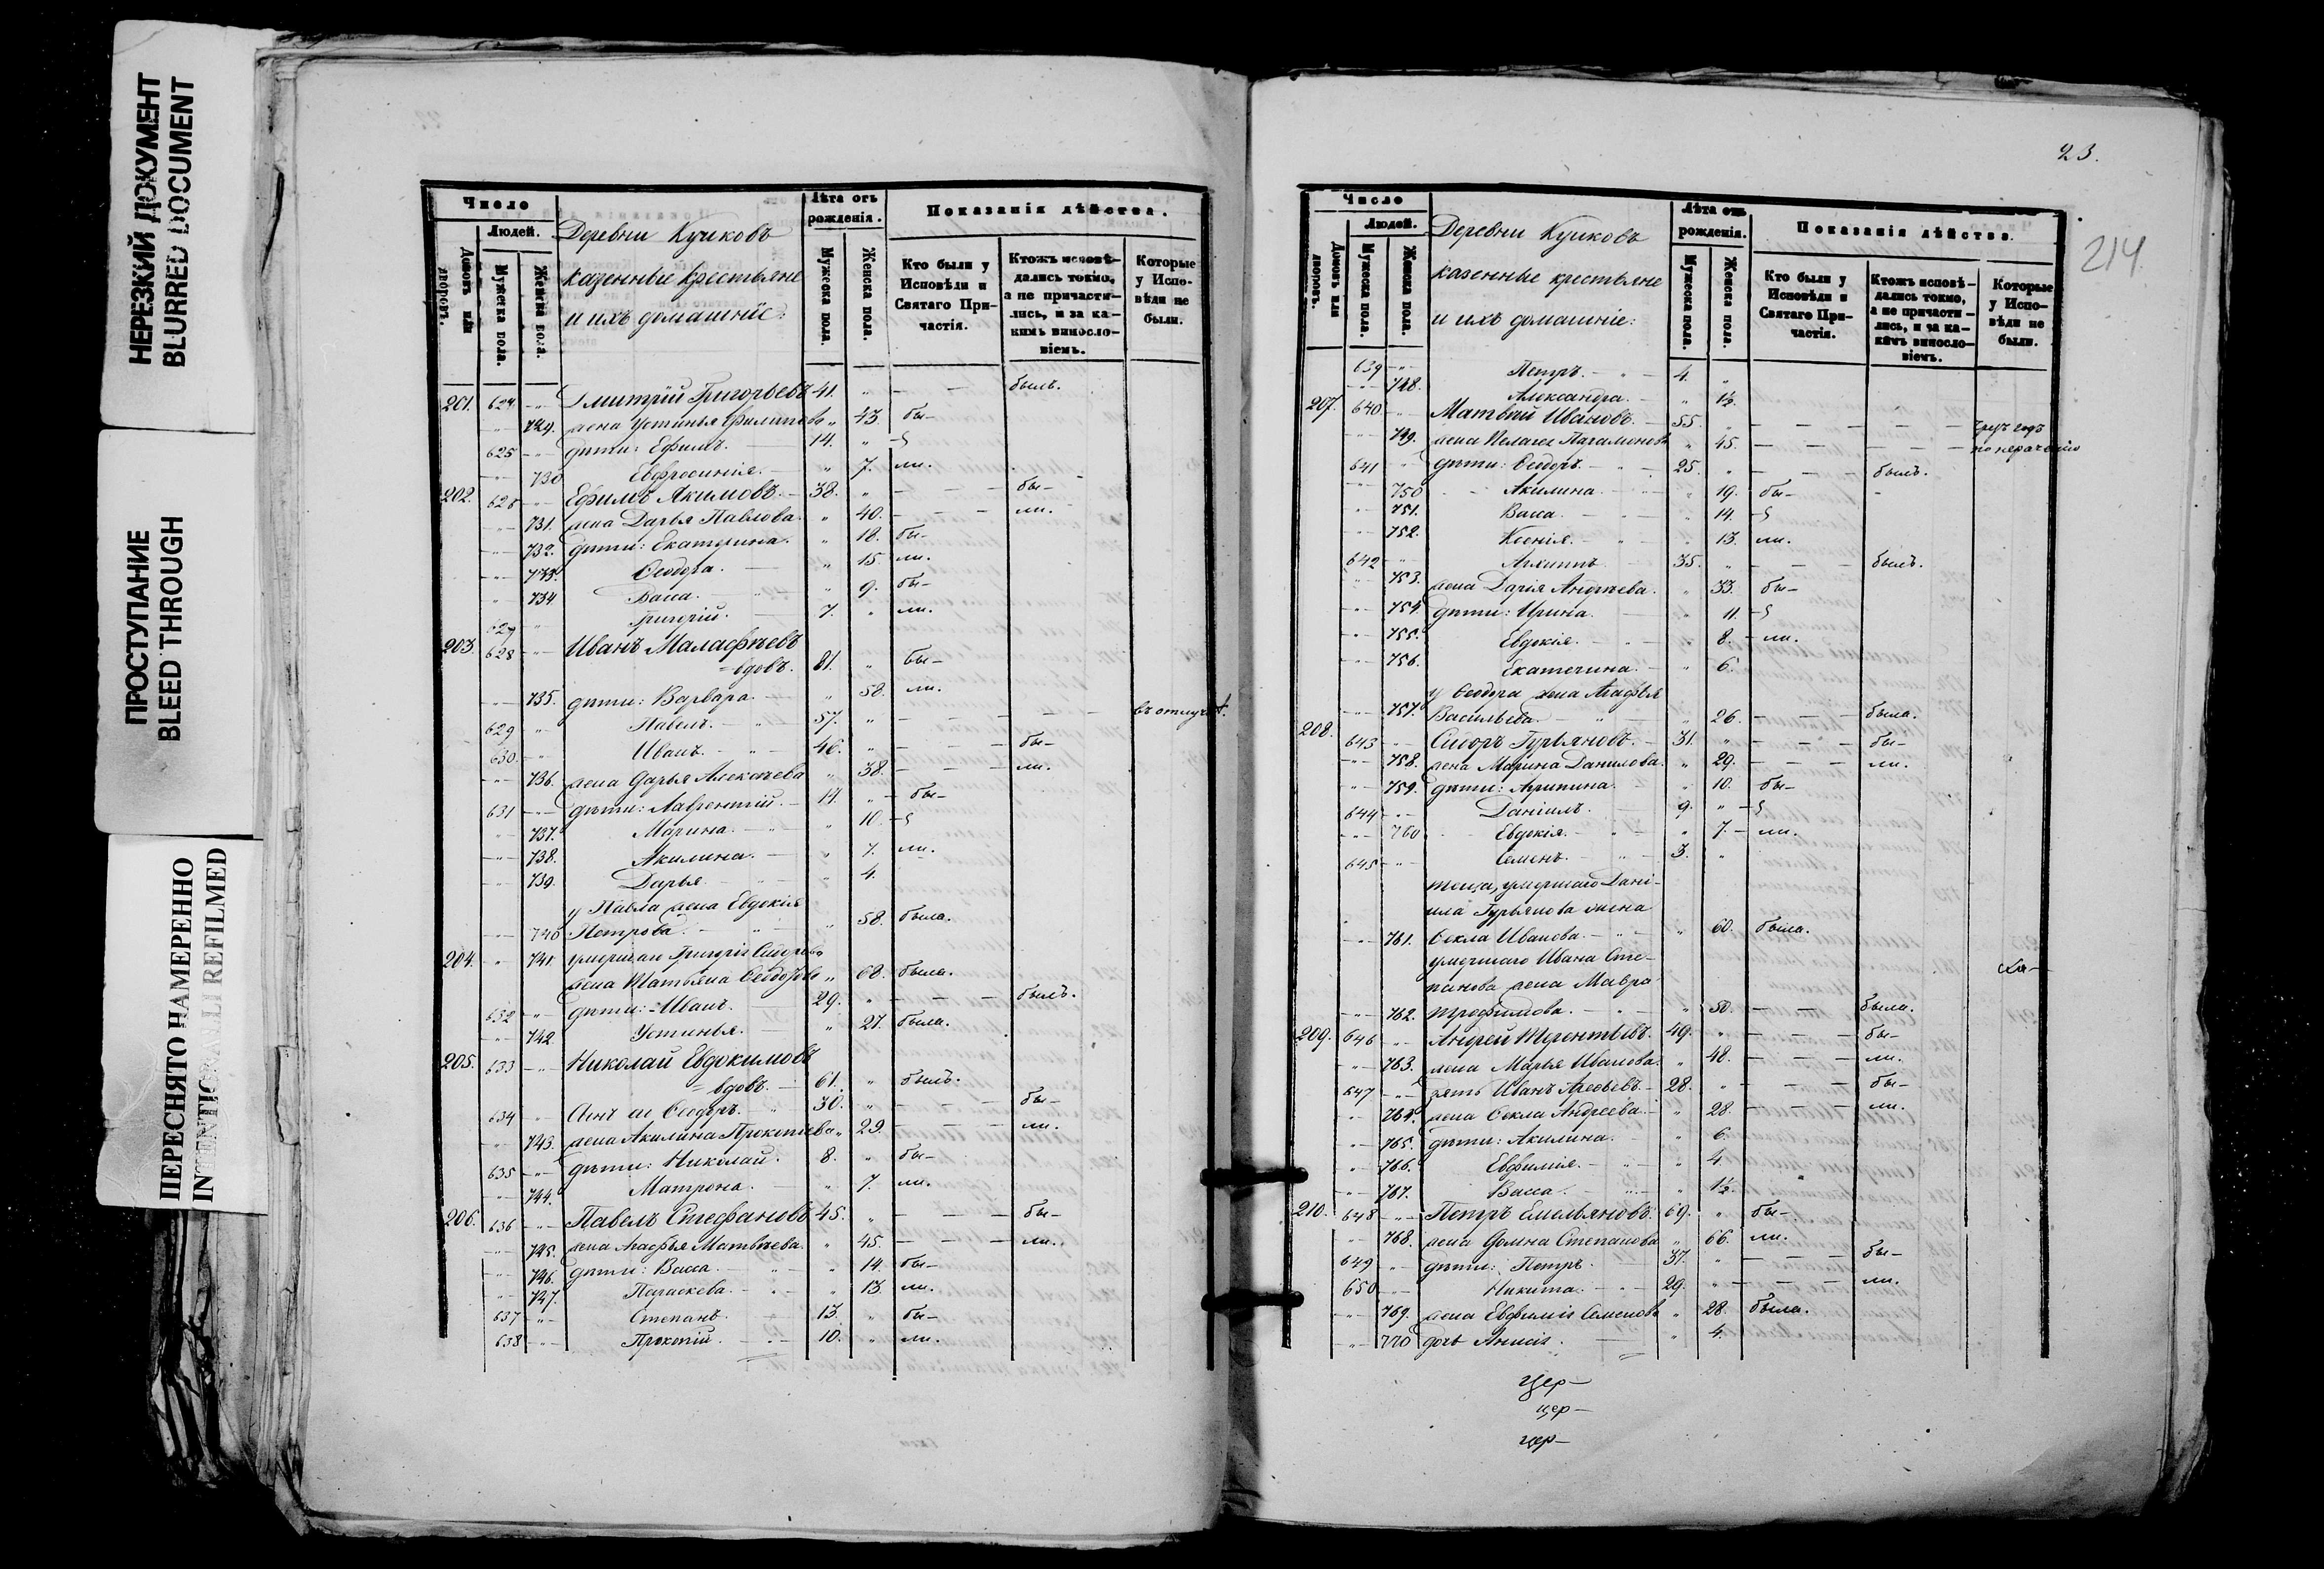 НЕРЕЗКИЙ ДОКУМЕНТ
BLURRED DOCUMENT
ПРОСТУПАНИЕ
BLEED THROUGH
ПЕРЕСНЯТО НАМЕРЕННО
INTENTIONALLI REFILMED
Число
Людей.
Домовъ или дворовъ.
Мужеска пола.
Женска пола.
Деревни Кучковъ
казенные крестьяне
и ихъ домашніе:
Лѣта отъ рожденія.
Мужеска пола.
Женска пола.
Показанія дѣйства.
Кто были у Исповѣди и Святаго Причастія.
Ктожъ исповѣдались токмо, а не причастились, и за какимъ винословіемъ.
Которые у Исповѣди не были.
201. 624 Дмитрій Григорьевъ 41. " — — былъ.
729. жена Устинья Филипова " 43. бы–
625 дѣти: Ефимъ. 14. "
730 Евфросинія. " 7. ли.
202. 626 Ефимъ Якимовъ. 38. " — — — бы–
731. жена Дарья Павлова. " 40. — — — ли.
732. дѣти: Екатерина. " 18. бы–
733. Ѳеодора. " 15. ли.
734. Васса. " 9. бы–
627 Григорій. 7. " ли.
203. 628 Иванъ Малафѣевъ
вдовъ. 81. " бы–
735. дѣти: Варвара. " 58. ли.
629 Павелъ. 57. " — — — — — въ отлучкѣ.
630. Иванъ. 46. " — — — бы–
736. жена Дарья Алексѣева " 38. — — — ли.
631 дѣти: Лаврентій. 14. " бы–
737. Марина. " 10.
738. Акилина. " 7. ли.
739. Дарья. " 4.
у Павла жена Евдокія
740 Петрова. " 58. была.
204. " 741. умершаго Григорія Сидорова
жена Татьяна Ѳеодорова " 68. была.
632 дѣти: Иванъ. 29. " — — — былъ.
742 Устинья. " 21. была.
205. 633 Николай Евдокимовъ
вдовъ. 61. " былъ.
634 Сынъ его Ѳеодоръ. 30. " — — — бы–
743. жена Акилина Прокопіева " 29. — — — ли.
635 дѣти: Николай. 8. " бы–
744. Матрона. " 7. ли.
206. 636 Павелъ Стефановъ 45. " — — — бы–
745. жена Агафья Матвѣева. " 45. — — — ли.
746. дѣти: Васса. " 14. бы–
747. Параскева. " 13. ли.
637 Степанъ. 13. " бы–
638 Прокопій. 10. " ли.
23.
214.
Число
Людей.
Домовъ или дворовъ.
Мужеска пола.
Женска пола.
Деревни Кучковъ
казенные крестьяне
и ихъ домашніе:
Лѣта отъ рожденія.
Мужеска пола.
Женска пола.
Показанія дѣйства.
Кто были у Исповѣди и Святаго Причастія.
Ктожъ исповѣдались токмо, а не причастились, и за какимъ винословіемъ.
Которые у Исповѣди не были.
639 Петръ. 4. "
748. Александра. " 1½.
207. 640 Матвѣй Ивановъ. 55. " — — — — —
749. жена Пелагея " 45. — — — — — по нераченію
641 дѣти: Ѳеодоръ. 25. " — — — былъ.
750 Акилина. " 19. бы–
751. Васса. " 14.
752. Ксенія. " 13. ли.
642 Архипъ. 35. " — — былъ.
753. жена Дарія Андреева. " 33. бы–
754. дѣти: Ирина. " 11.
755. Евдокія. " 8. ли.
756. Екатерина. " 6.
у Ѳеодора жена Агафья
757. Васильева. " 26. — — — была.
208. 643 Сидоръ Гурьяновъ. 31. " — — — бы–
758. жена Марина Данилова. " 29. — — — ли.
759. дѣти: Агрипина. " 10. бы–
644 Даніилъ. 9. "
760 Евдокія. " 7. ли.
645 Семенъ. 3. "
теща, умершаго Дані–
ила Гурьянова жена
761. Ѳекла Иванова. " 60. была.
умершаго Ивана Сте–
панова жена Мавра
762. Трофимова. " 50. — — — была.
209. 646 Андрей Терентьевъ. 49. " — — — бы–
763. жена Марья Иванова. " 48. — — — ли.
647 зять Иванъ Агеевъ. 28. " — — — бы–
764. жена Ѳекла Андреева. " 28. — — — ли.
765. дѣти: Акилина. " 6.
766. Евфимія. " 4.
767. Васса. " 1½.
210. 648 Петръ Емельяновъ. 69. " бы–
768. жена Домна Степанова " 66. ли.
649 дѣти: Петръ. 37. " — — — бы–
650 Никита. 29. " — — — ли.
769. жена Евфимія Семенова " 28. была.
770 дочь Анисія. " 4.
Цер–
цер–
цер–